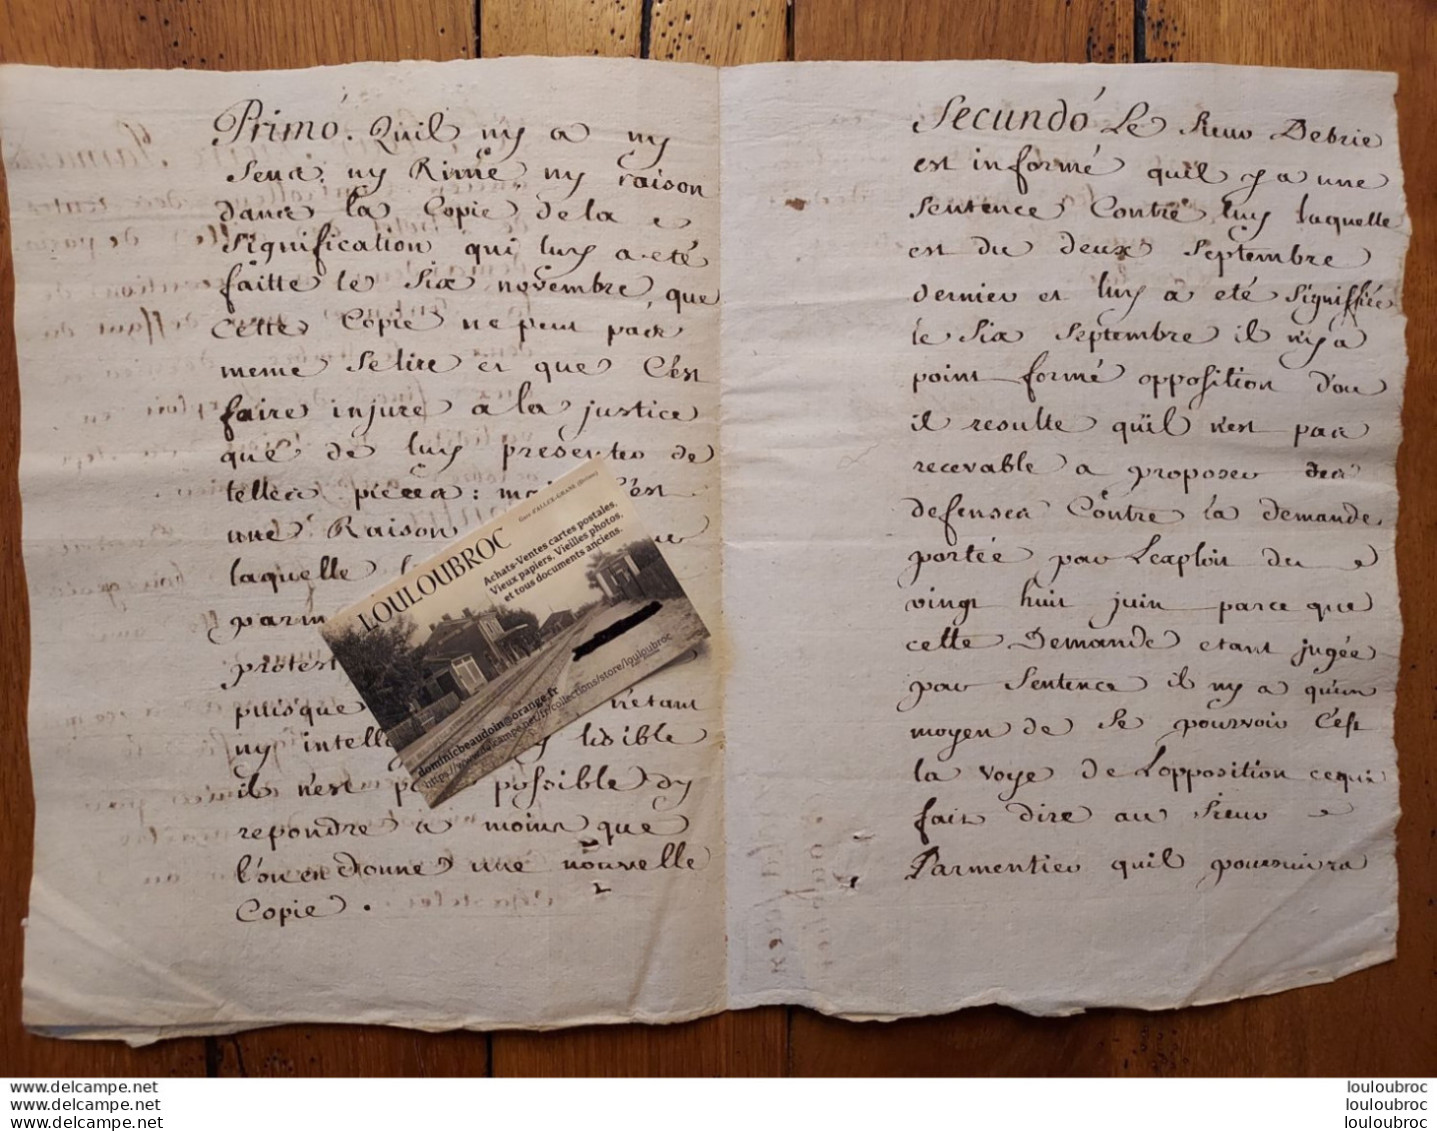 Primó. Quil ny a ny
Sens, ny Rime, ny raison
dans la Copie de la
Signification qui luy a eté
faitte le Six novembre, que
Cette Copie ne peut pas
meme Se lire et que C'est
faire injure a la justice
que de luy presenter de
telles pieces: mais C'est
une Raison
laquelle
parm
protest
puisque n'etant
ny intell lisible
il n'est possible dy
repondre a moins que
l'on en donne une nouvelle
Copie.
Secundó Le Sieur Debrie
est informé quil y a une
Sentence Contre luy laquelle
est du deux Septembre
dernier et luy a eté Signifiée
le Six Septembre il n'y a
point formé opposition d'ou
il resulte qu'il n'est pas
recevable a proposer des
defenses Contre la demande
portée par Lexploit du
vingt huit juin parce que
cette Demande etant jugée
par Sentence il ny a qu'un
moyen de Se pourvoir C'est
la voye de Lopposition ce qui
fait dire au Sieur
Parmentier quil poursuivra
Gare d'ALLEX-GRANE (Drôme)
LOULOUBROC
Achats-Ventes cartes postales,
Vieux papiers, Vieilles photos,
et tous documents anciens.
dominicbeaudoin@orange.fr
https://www.delcampe.net/fr/collections/store/louloubroc
www.delcampe.net
www.delcampe.net
www.delcampe.net
louloubroc
louloubroc
louloubroc